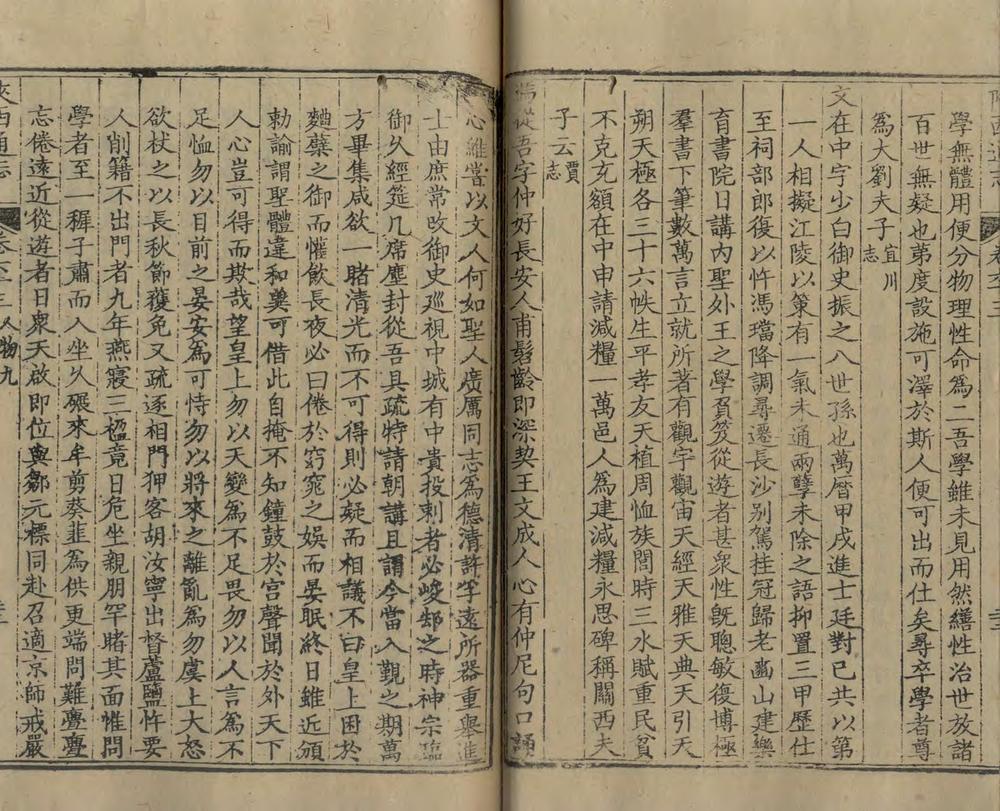 學無體用便分物理性命爲二吾學雖未見用然繕性治世放諸
百世無疑也第度設施可澤於斯人便可出而仕矣尋卒學者尊
爲大劉夫子宜川志
文在中字少白御史振之八世孫也萬曆甲戌進士廷對已共以第
一人相擬江陵以策有一氣未通兩孽未除之語抑置三甲歷仕
至祠部郎復以忤馮璫降調尋遷長沙别駕挂冠歸老豳山建樂
育書院日講内聖外王之學負笈從遊者甚衆性旣聰敏復博極
羣書下筆數萬言立就所著有觀宇觀宙天經天雅天典天引天
朔天極各三十六帙生平孝友天植周恤族閭時三水賦重民貧
不克充額在中申請減糧一萬邑人爲建減糧永思碑稱關西夫
子云賈志
馮從吾字仲好長安人甫髫齡即深契王文成人心有仲尼句口誦
心維嘗以文人何如聖人賡厲同志爲德清許孚遠所器重舉進
士由庶常改御史巡視中城有中貴投刺者必峻却之時神宗臨
御久經筵几席塵封從吾具疏特請朝講且謂今當入覲之期萬
方畢集咸欲一睹清光而不可得則必疑而相議不曰皇上困於
麯糵之御而懽飲長夜必曰倦於窈窕之娛而晏眠終日雖近頒
勅諭謂聖體違和奚可借此自掩不知鐘鼓於宫聲聞於外天下
人心豈可得而欺哉望皇上勿以天變爲不足畏勿以人言爲不
足恤勿以目前之晏安爲可恃勿以將來之離亂爲勿虞上大怒
欲杖之以長秋節獲免又疏逐相門狎客胡汝寧出督蘆鹽忤要
人削籍不出門者九年燕寢三楹竟日危坐親朋罕睹其面惟問
學者至一穉子肅而入坐久碾來牟剪葵韭爲供更端問難亹亹
忘倦遠近從遊者日衆天啟即位與鄒元標同赴召適京師戒嚴
陝西通志 人物九